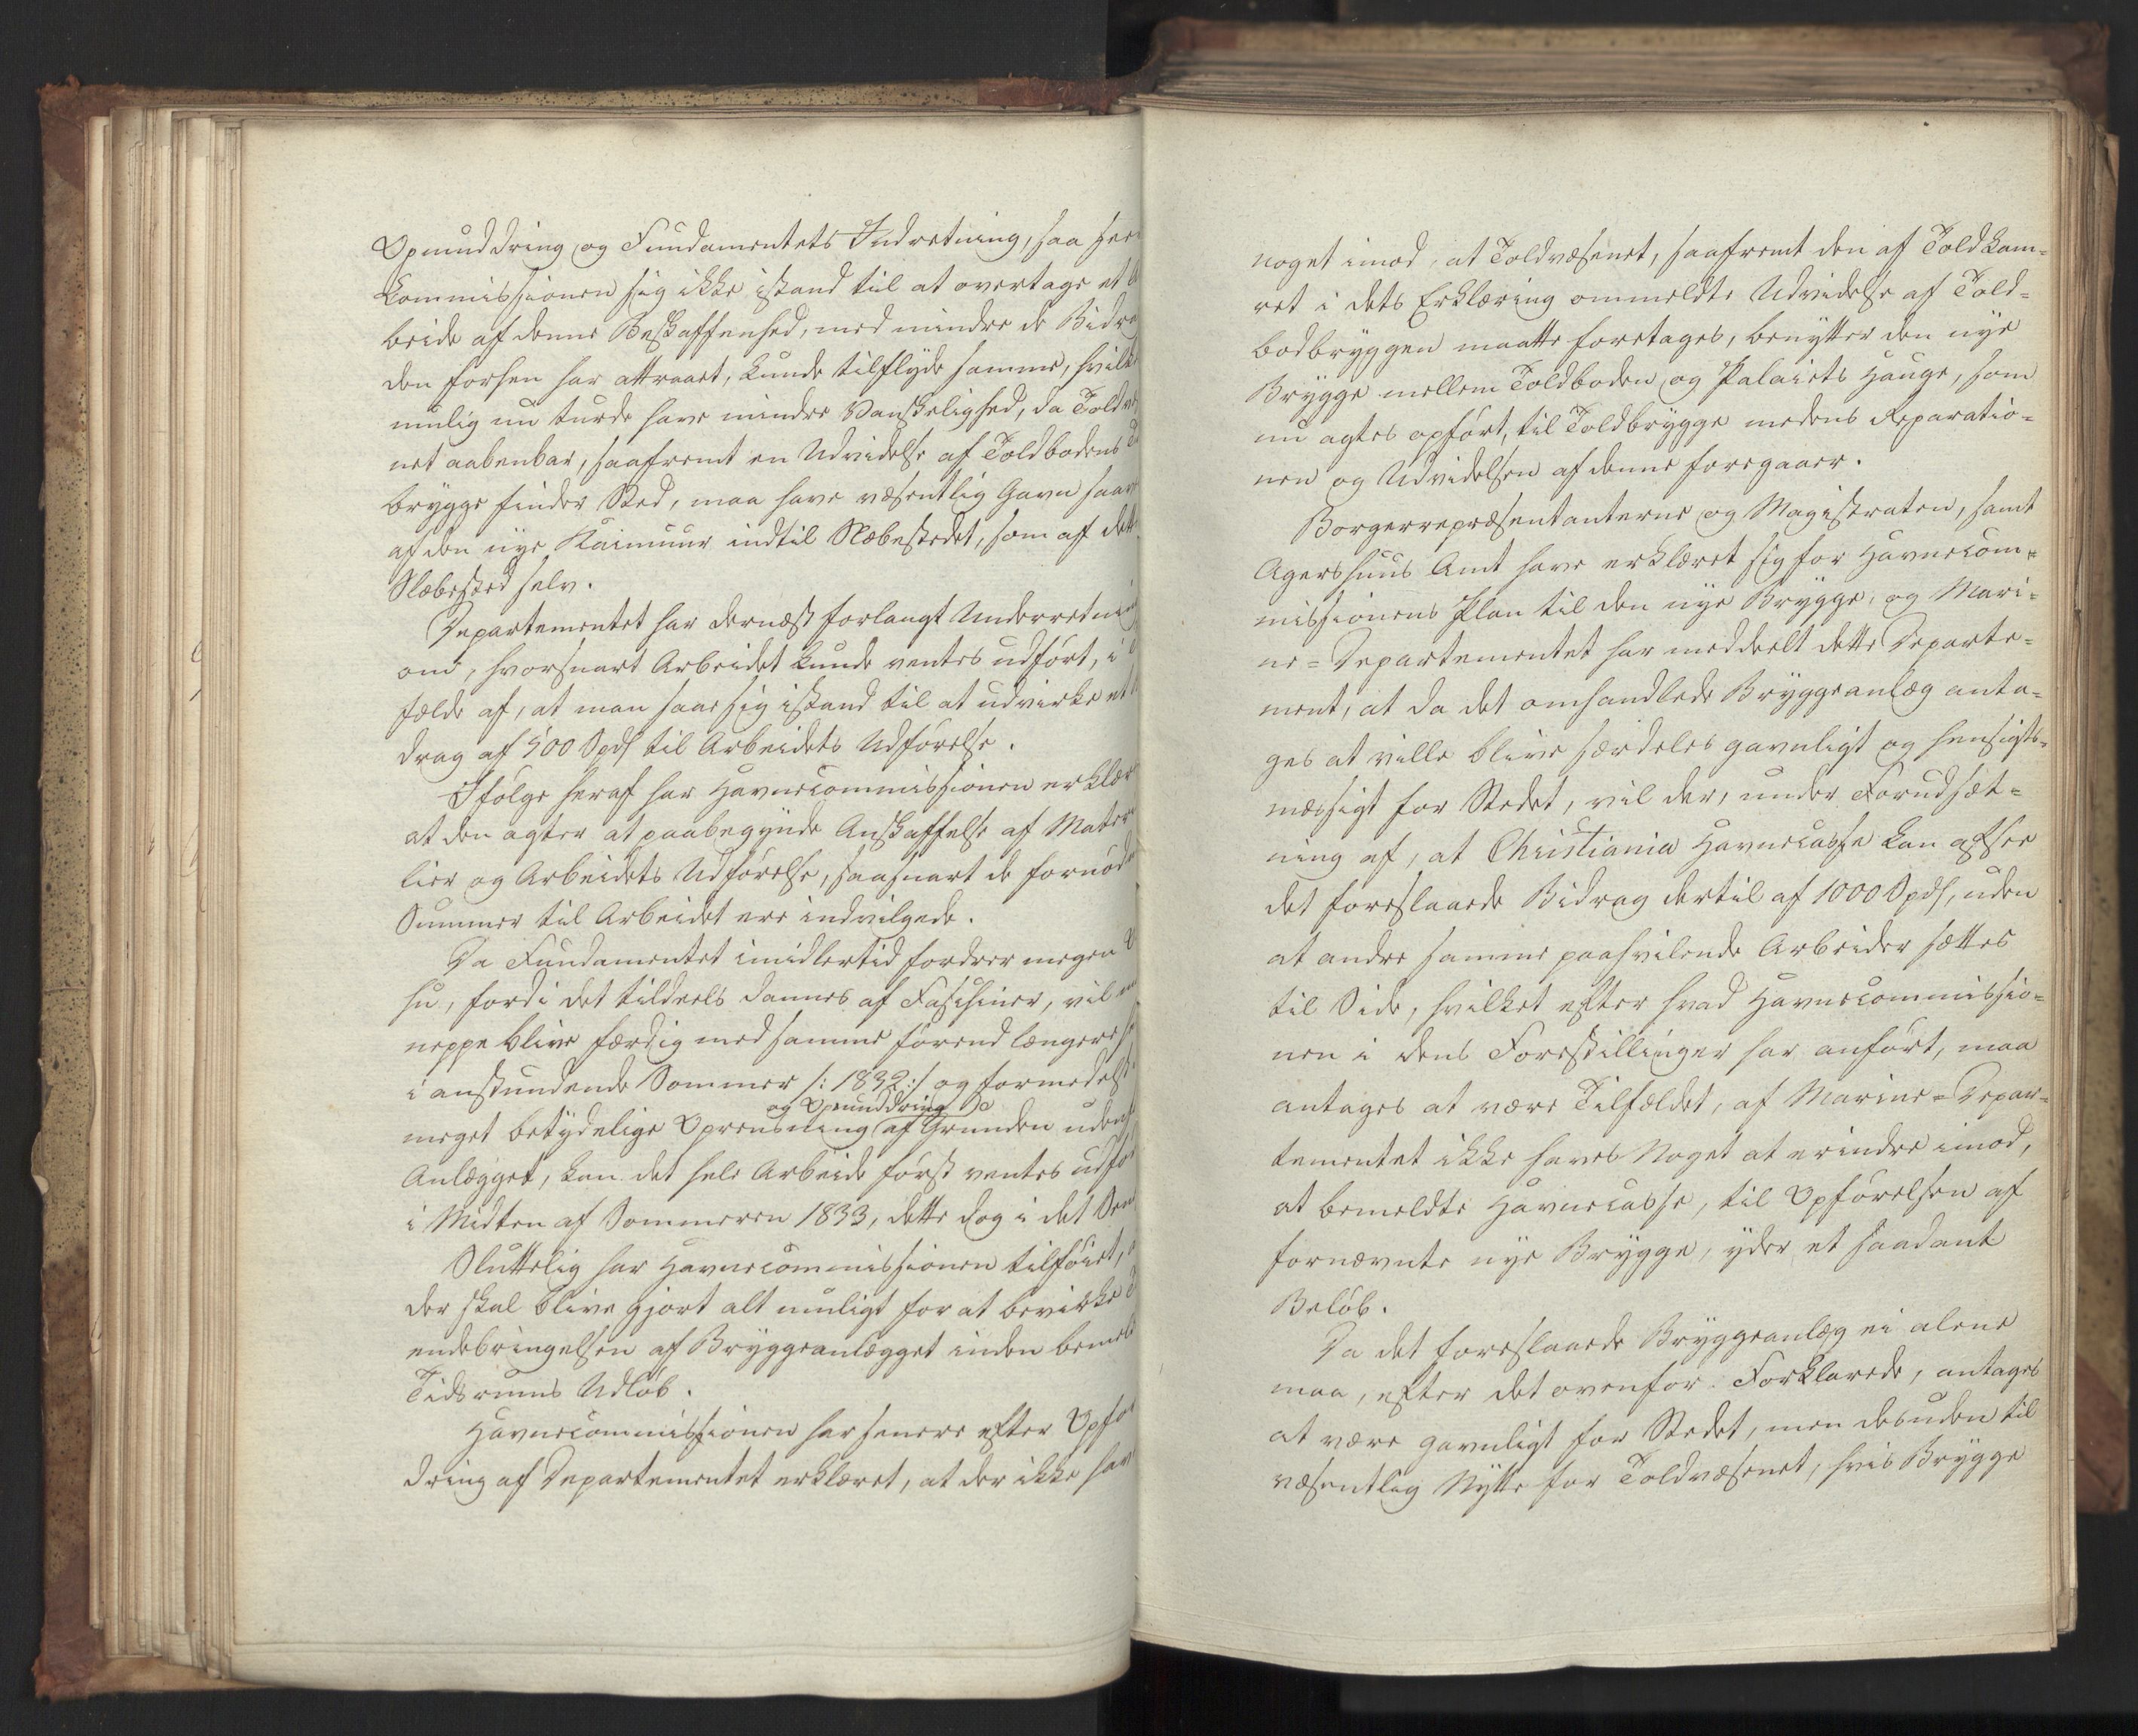 Opmuddring og Fundamentets Indretning, saa seer
Commissionen sig ikke istand til at overtage et
beide af denne Beskaffenhed, med mindre de Bidra
den forhen har attraaet, kunde tilflyde samme, hvilk
mulig nu turde have mindre Vanskelighed, da Toldvæ
net aabenbar, saafremt en Udvidelse af Toldbodens
brygge finder Sted, maa have væsentlig Gavn saav
af den nye Kaimuur indtil Slæbestedet, som af dett
Slæbested selv.
Departementet har dernæst forlangt Underretnin
om, hvorsnart Arbeidet kunde ventes udført, i
fælde af, at man saae sig istand til at udvirke et
drag af 500 Spd til Arbeidets Udførelse.
Ifølge heraf har Havnecommissionen erklær
at den agter at paabegynde Anskaffelse af Mater
lier og Arbeidets Udførelse, saasnart de fornød
Summer til Arbeidet ere indvilgede.
Da Fundamentet imidlertid fordrer megen
hu, fordi det tildeels dannes af Faschiner, vil
neppe blive færdig med samme førend længere
i anstundende Sommer /: 1832 :/ og formedelst
og Opmuddring
meget betydelige Oprensning af Grunden uden
Anlægget, kan det hele Arbeide først ventes udfø
i Midten af Sommeren 1833, dette dog i det
Sluttelig har Havnecommissionen tilføiet,
der skal blive gjort alt muligt for at bevirke
endebringelsen af Bryggeanlægget inden bemeld
Tidsrums Udløb.
Havnecommissionen har senere efter Opfor
dring af Departementet erklæret, at der ikke hav
noget imod, at Toldvæsenet, saafremt den af Toldkam=
ret i dets Erklæring ommeldte Udvidelse af Told=
bodbryggen maatte foretages, benytter den nye
Brygge mellem Toldboden og Palaiets Hauge, som
nu agtes opført, til Toldbrygge medens Reparatio=
nen og Udvidelsen af denne foregaaer.
Borgerrepræsentanterne og Magistraten, samt
Agershuus Amt have erklæret sig for Havnecom=
missionens Plan til den nye Brygge, og Mari=
ne=Departementet har meddeelt dette Departe=
ment, at da det omhandlede Bryggeanlæg anta=
ges at ville blive særdeles gavnligt og hensigts=
mæssigt for Stedet, vil der, under Forudsæt=
ning af, at Christiania Havnecasse kan afsee
det foreslaaede Bidrag dertil af 1000 Spd, uden
at andre samme paahvilende Arbeider sættes
til Side, hvilket efter hvad Havnecommissio=
nen i dens Forestillinger har anført, maa
antages at være Tilfældet, af Marine=Depar=
tementet ikke haves Noget at erindre imod,
at bemeldte Havnecasse, til Opførelsen af
fornævnte nye Brygge, yder et saadant
Beløb.
Da det foreslaaede Bryggeanlæg ei alene
maa, efter det ovenfor Forklarede, antages
at være gavnligt for Stedet, men desuden til
væsentlig Nytte for Toldvæsenet, hvis Brygge